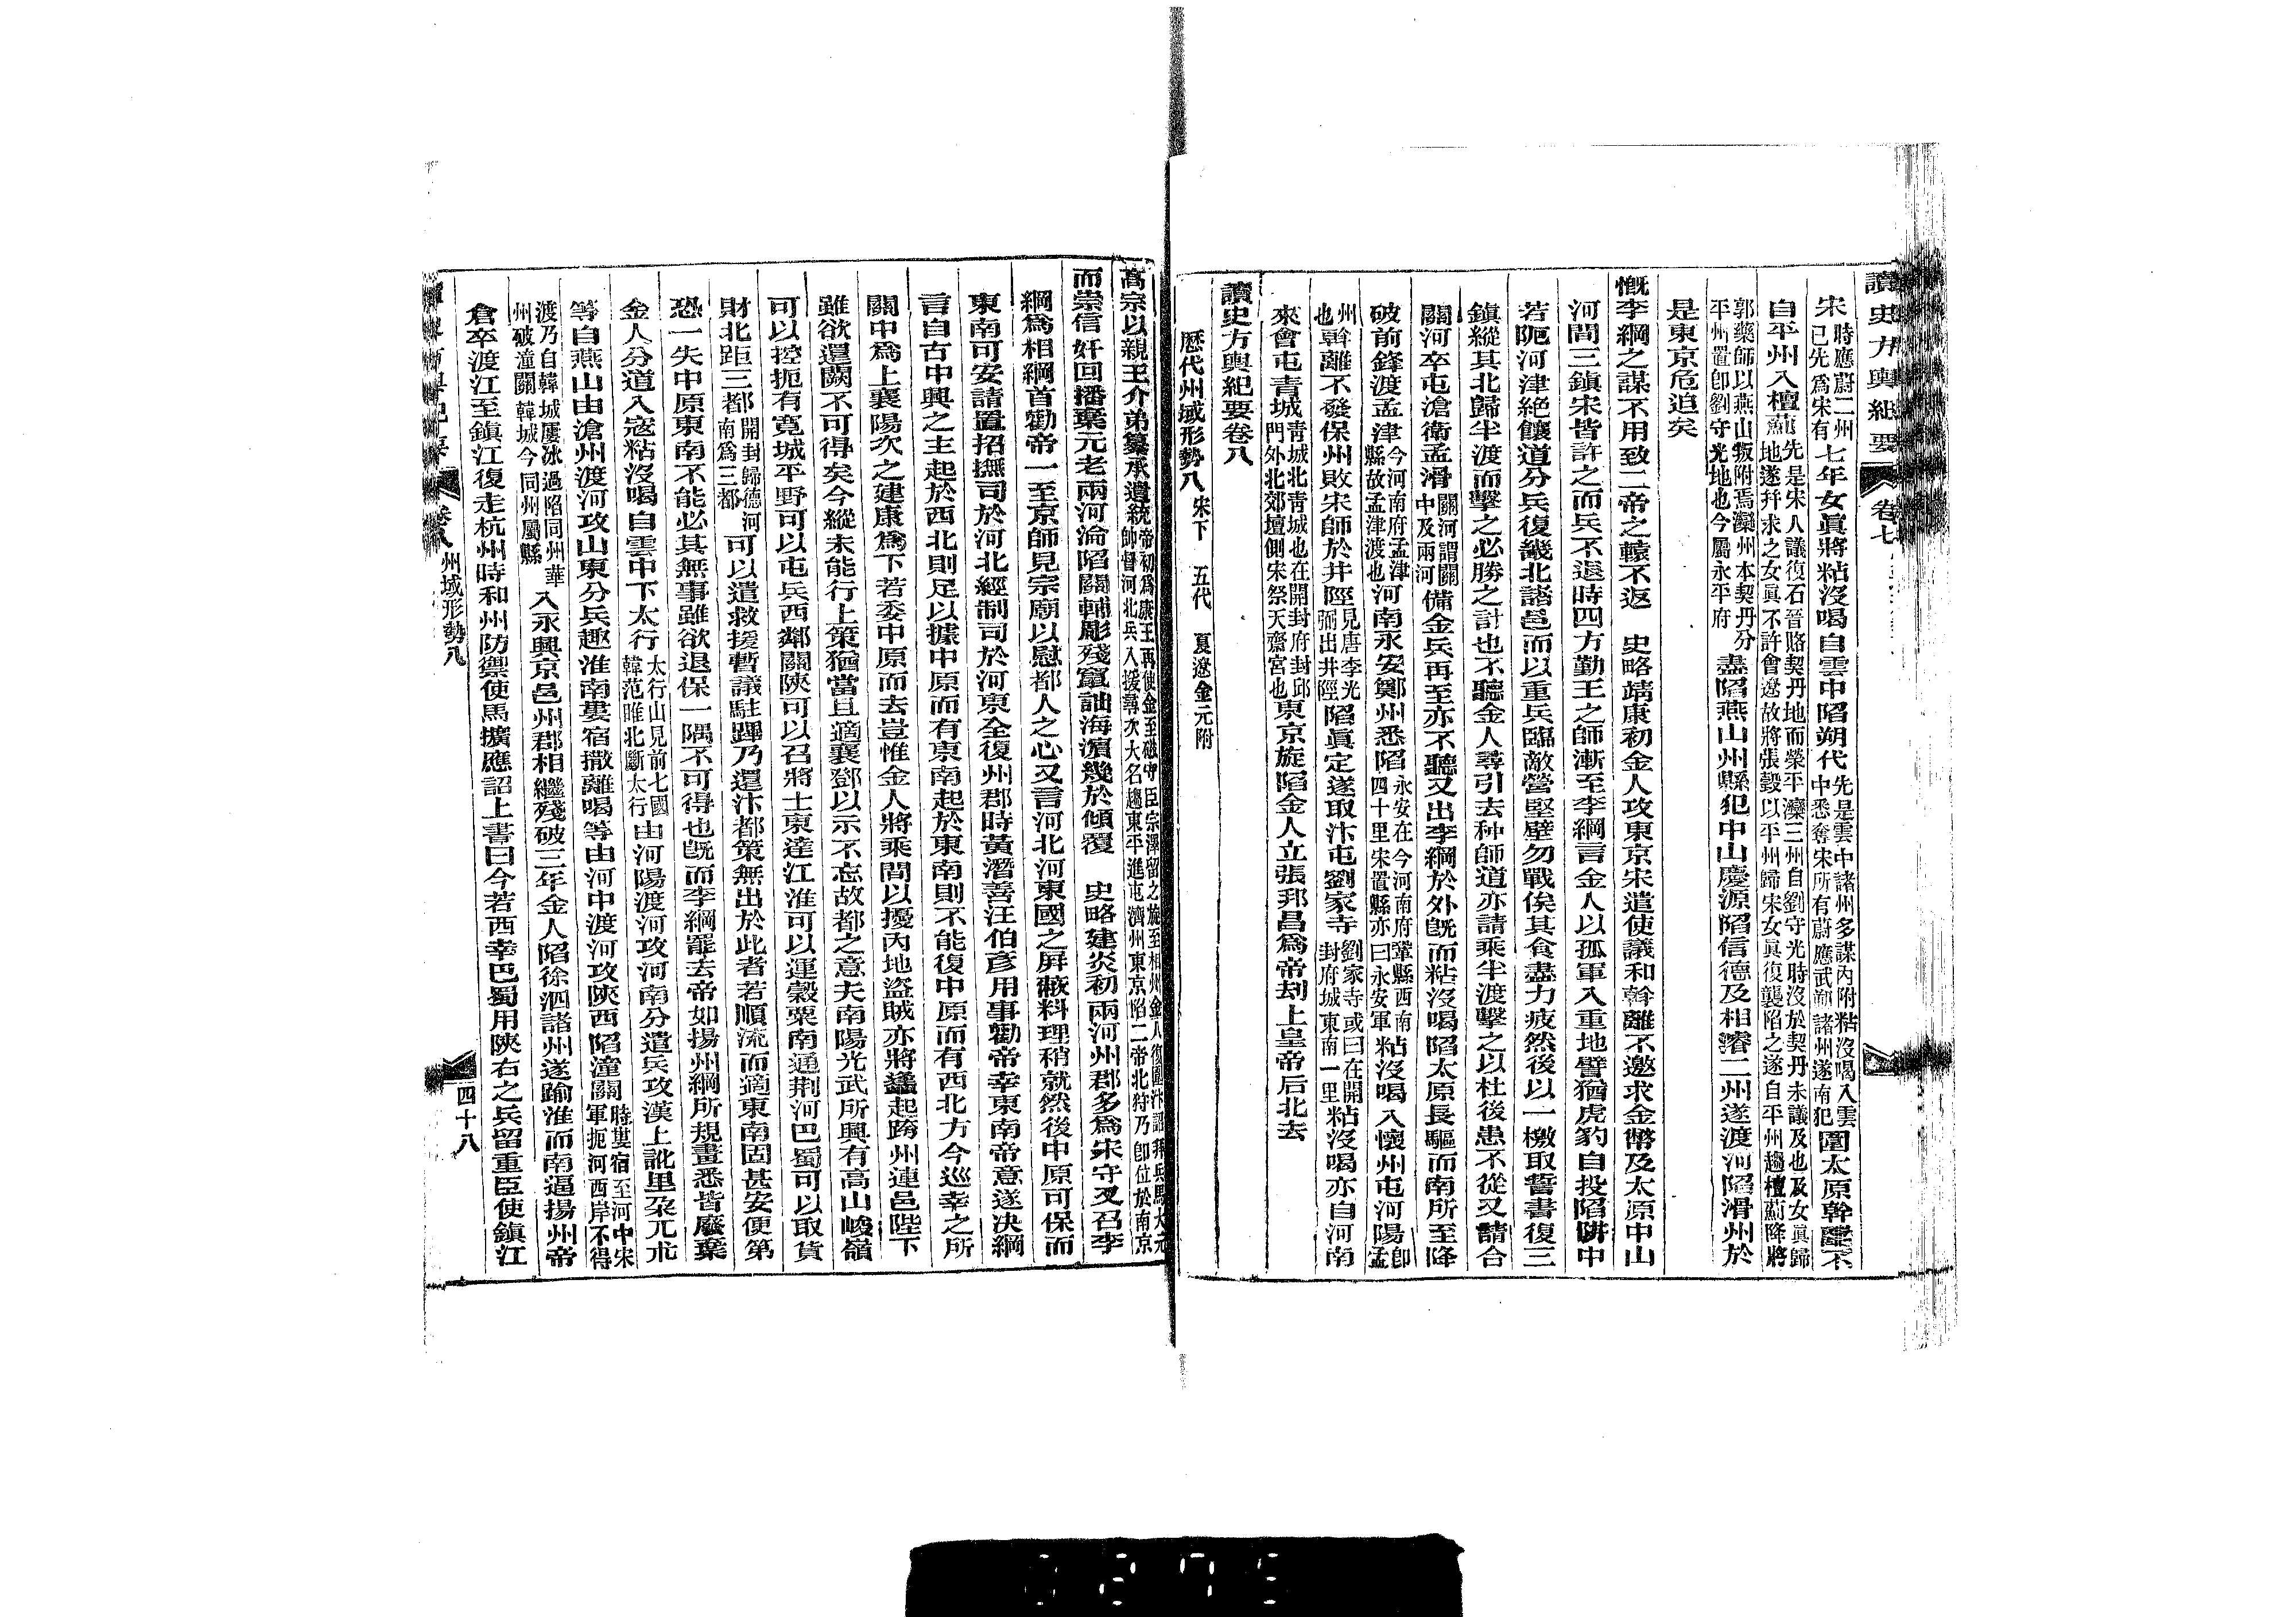 讀史方輿紀要 卷七
宋時應蔚二州已先爲宋有七年女眞將粘沒喝自雲中陷朔代先是雲中諸州多謀內附粘沒喝入雲中悉奪宋所有蔚應武朔諸州遂南犯圍太原斡離不
自平州入檀薊先是宋人議復石晉賂契丹地而榮平灤三州自劉守光時沒於契丹未議及也及女眞歸地遂幷求之女眞不許會遼故將張瑴以平州歸宋女眞復襲陷之遂自平州趨檀薊降將
郭藥師以燕山叛附焉灤州本契丹分平州置卽劉守光地也今屬永平府盡陷燕山州縣犯中山慶源陷信德及相濬二州遂渡河陷滑州於
是東京危迫矣
慨李綱之謀不用致二帝之轅不返 史略靖康初金人攻東京宋遣使議和斡離不邀求金幣及太原中山
河間三鎭宋皆許之而兵不退時四方勤王之師漸至李綱言金人以孤軍入重地譬猶虎豹自投陷阱中
若阨河津絶饟道分兵復畿北諸邑而以重兵臨敵營堅壁勿戰俟其食盡力疲然後以一檄取誓書復三
鎭縱其北歸半渡而擊之必勝之計也不聽金人尋引去种師道亦請乘半渡擊之以杜後患不從又請合
關河卒屯滄衛孟滑關河謂關中及兩河備金兵再至亦不聽又出李綱於外旣而粘沒喝陷太原長驅而南所至降
破前鋒渡孟津今河南府孟津縣故孟津渡也河南永安鄭州悉陷永安在今河南府鞏縣西南四十里宋置縣亦曰永安軍粘沒喝入懷州屯河陽卽孟
州也斡離不發保州敗宋師於井陘見唐李光弼出井陘陷眞定遂取汴屯劉家寺劉家寺或曰在開封府城東南一里粘沒喝亦自河南
來會屯青城青城北青城也在開封府封邱門外北郊壇側宋祭天齋宮也東京旋陷金人立張邦昌爲帝刼上皇帝后北去
讀史方輿紀要卷八
歷代州域形勢八 宋下 五代 夏遼金元附
高宗以親王介弟纂承遺統帝初爲康王再使金至磁守臣宗澤留之旋至相州金人復圍汴詔拜兵馬大元帥督河北兵入援尋次大名趨東平進屯濟州東京陷二帝北狩乃卽位於南京
而崇信奸回播棄元老兩河淪陷關輔彫殘竄詘海濵幾於傾覆 史略建炎初兩河州郡多爲宋守又召李
綱爲相綱首勸帝一至京師見宗廟以慰都人之心又言河北河東國之屛蔽料理稍就然後中原可保而
東南可安請置招撫司於河北經制司於河東全復州郡時黃潛善汪伯彥用事勸帝幸東南帝意遂決綱
言自古中興之主起於西北則足以據中原而有東南起於東南則不能復中原而有西北方今巡幸之所
關中爲上襄陽次之建康爲下若委中原而去豈惟金人將乘間以擾內地盜賊亦將蠭起跨州連邑陛下
雖欲還闕不可得矣今縱未能行上策猶當且適襄鄧以示不忘故都之意夫南陽光武所興有高山峻嶺
可以控扼有寬城平野可以屯兵西鄰關陝可以召將士東達江淮可以運穀粟南通荆河巴蜀可以取貨
財北距三都開封歸德河南爲三都可以遣救援暫議駐蹕乃還汴都策無出於此者若順流而適東南固甚安便第
恐一失中原東南不能必其無事雖欲退保一隅不可得也旣而李綱罷去帝如揚州綱所規畫悉皆廢棄
金人分道入宼粘沒喝自雲中下太行太行山見前七國韓范睢北斷太行由河陽渡河攻河南分遣兵攻漢上訛里朶兀朮
等自燕山由滄州渡河攻山東分兵趣淮南婁宿撒離喝等由河中渡河攻陝西陷潼關時婁宿至河中宋軍扼河西岸不得
渡乃自韓城履冰過陷同州華州破潼關韓城今同州屬縣入永興京邑州郡相繼殘破三年金人陷徐泗諸州遂踰淮而南逼揚州帝
倉卒渡江至鎭江復走杭州時和州防禦使馬擴應詔上書曰今若西幸巴蜀用陝右之兵留重臣使鎭江
卷八 州域形勢八 四十八